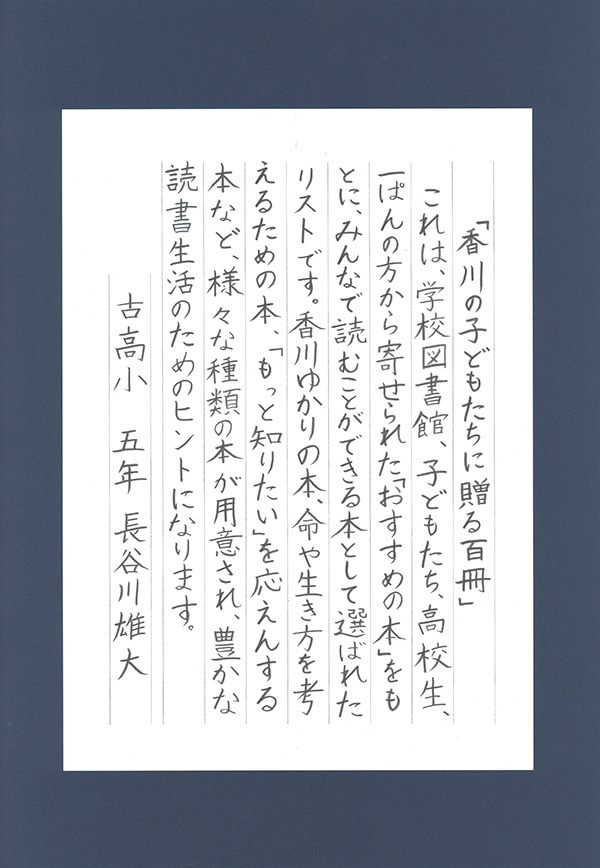 「香川の子どもたちに贈る百冊」
これは、学校図書館、子どもたち、高校生、
一ぱんの方から寄せられた「おすすめの本」をも
とに、みんなで読むことができる本として選ばれた
リストです。香川ゆかりの本、命や生き方を考
えるための本、「もっと知りたい」を応えんする
本など、様々な種類の本が用意され、豊かな
読書生活のためのヒントになります。
古高小 五年 長谷川雄大